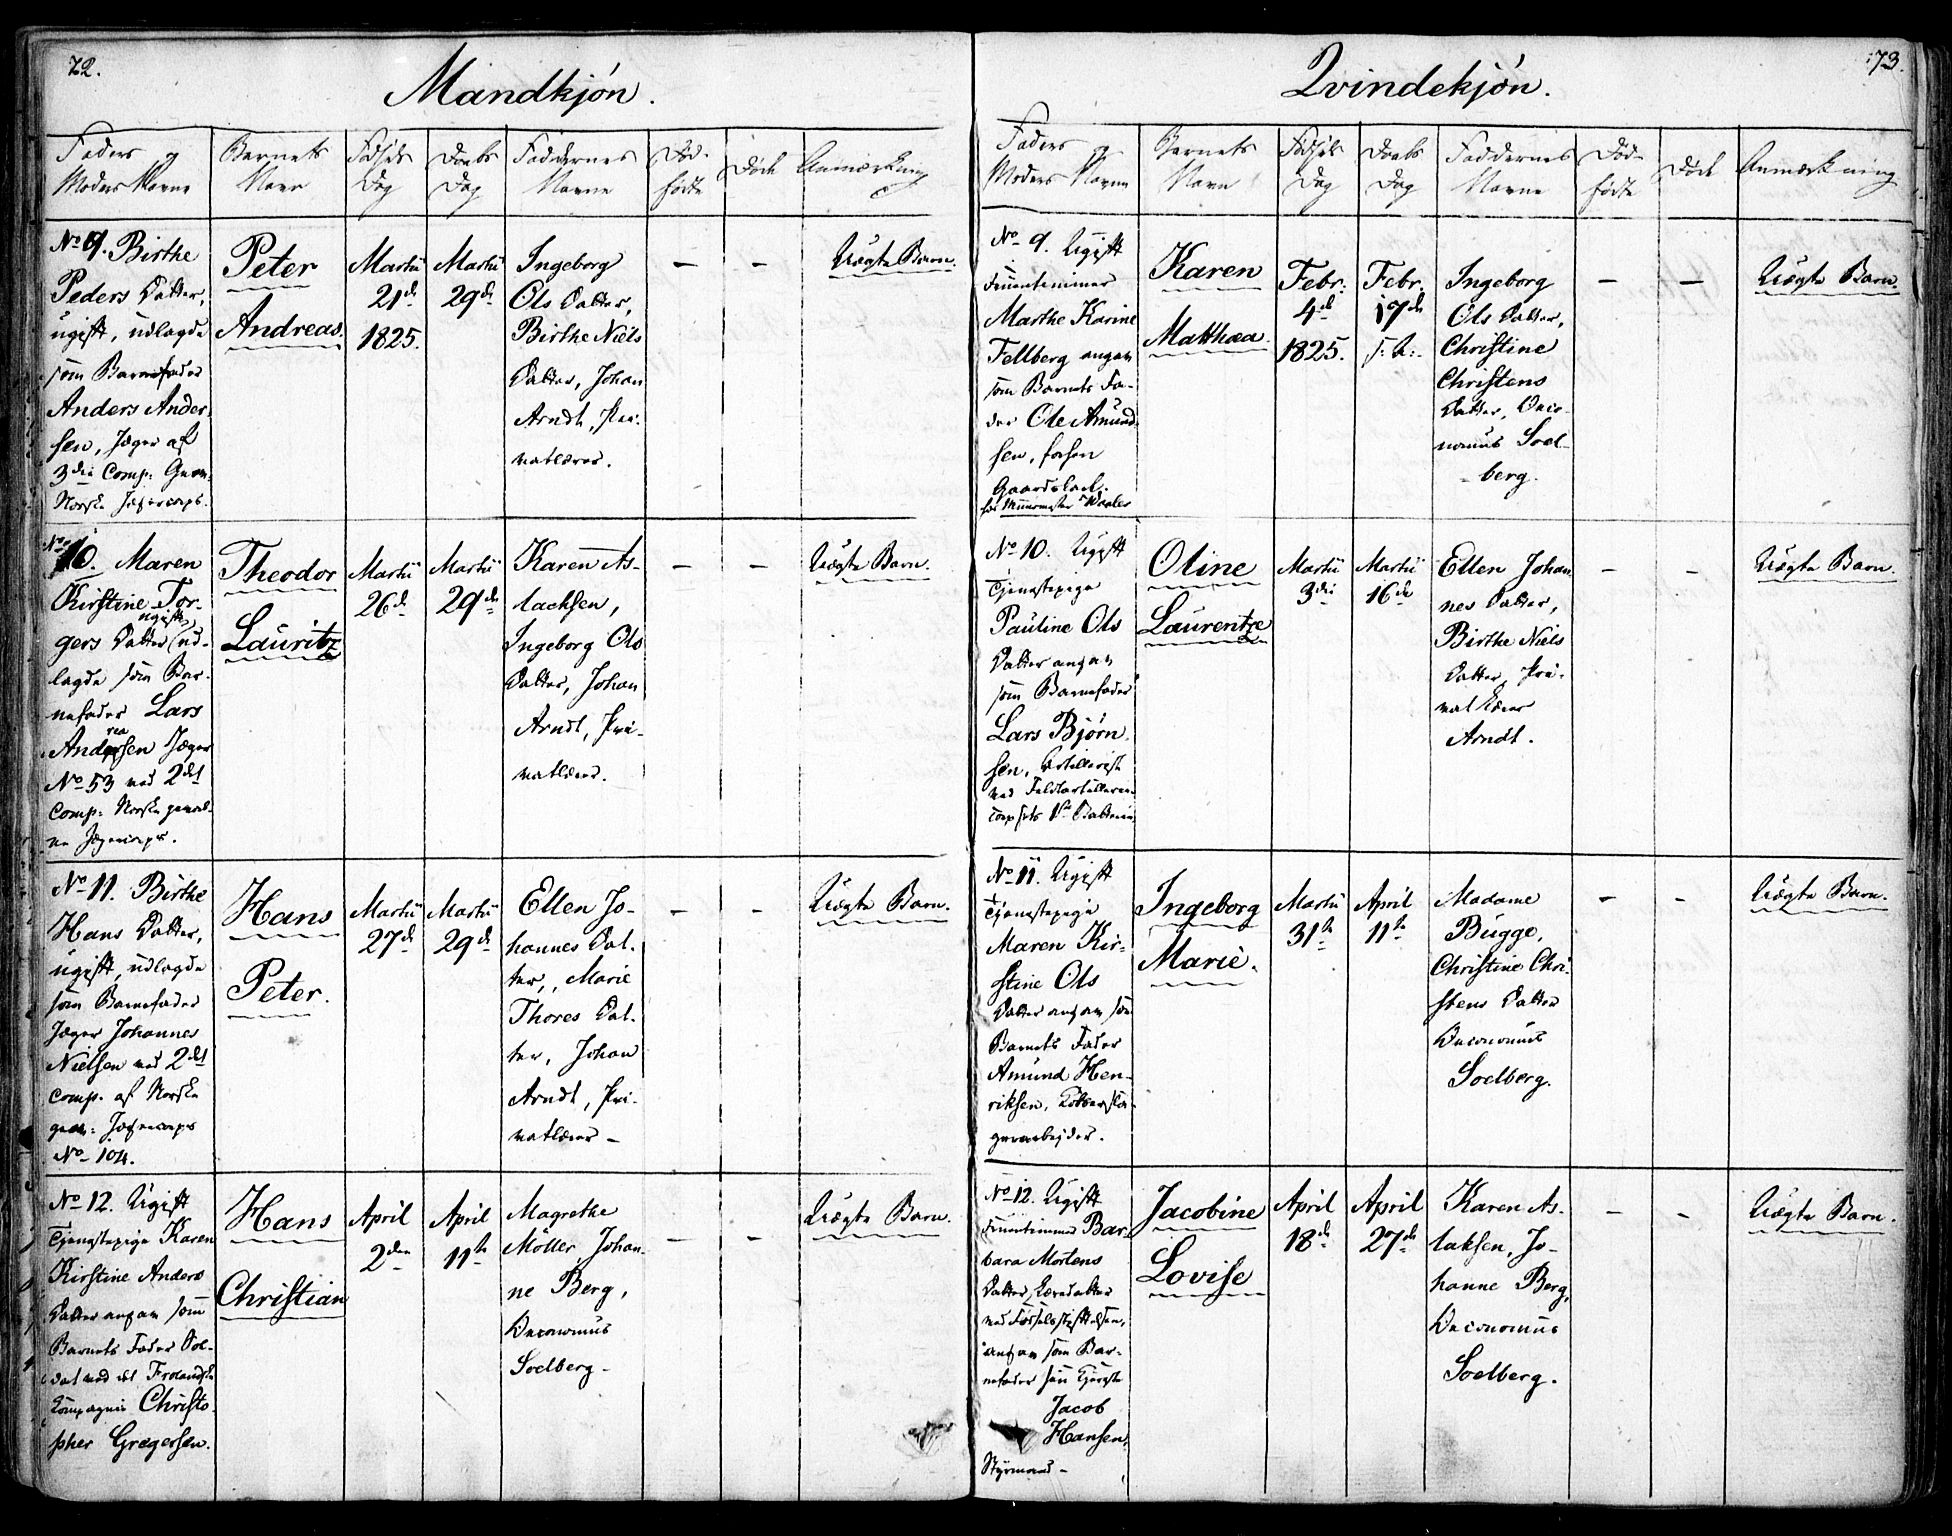 72.
Mandkjön.
Faders og
Moders Navne
Barnets
Navn
Fødsels
Dag
Daabs
Dag
Faddernes
Navne
Død-
fødte
Døde
Anmærkning
No 9. Birthe
Peders Datter,
ugift, udlagde
som Barnefader
Anders Ander-
sen, Jæger af
3die Comp:
Norske Jægercorps.
Peter
Andreas.
Martii
21de
1825.
Martii
29de
Ingeborg
Ols Datter,
Birthe Niels
Datter, Johan
Arndt, Pri-
vatlærer.
—
—
Uægte Barn.
No 10. Maren
Kirstine Tor-
gers Datter ugift, (ud-
lagde som Bar-
nefader Lars
Andreasen Jæger
No 53 ved 2det
Comp: Norske geval-
ne Jægercorps.
Theodor
Lauritz
Martii
26de
Martii
29de
Karen As-
lachsen,
Ingeborg Ols
Datter, Johan
Arndt, Pri-
vatlærer.
—
—
Uægte Barn.
No 11. Birthe
Hans Datter,
ugift, udlagde
som Barnefader
Jæger Johannes
Nielsen ved 2det
Comp. af Norske
gev: Jægercorps
No 104.
Hans
Peter.
Martii
27de
Martii
29de
Ellen Jo-
hannes Dat-
ter, Marie
Thores Dat-
ter, Johan
Arndt, Pri-
vatlærer –
—
—
Uægte Barn.
No 12. Ugift
Tjenestepige Karen
Kirstine Anders
Datter angav som
Barnets Fader Sol-
dat ved det Frolandske
Compagnie Christo-
pher Gregersen.
Hans
Christian
April
2den
April
11te
Magrethe
Möller, Johan-
ne Berg,
Oeconomus
Soelberg –
—
—
Uægte Barn.
73.
Qvindekjön.
Faders og
Moders Navne
Barnets
Navn
Fødsels
Dag
Daabs
Dag
Faddernes
Navne
Død-
fødte
Døde
Anmærkning
No 9. Ugift
Fruentimmer
Marthe Karine
Fellberg angav
som Barnets Fa-
der Ole Amund-
sen, forhen
Gaardskarl
hos Muurmester Waaler
Karen
Matthæa.
Febr.
4de
1825.
Febr.
17de
s: A:
Ingeborg
Ols Datter,
Christine
Christens
Datter, Oeco-
nomus Soel-
berg.
—
—
Uægte Barn.
No 10. Ugift
Tjenestepige
Pauline Ols
Datter angav
som Barnefader
Lars Björn-
sen, Artillerist
ved Feldtartilleri-
corpsets 1ste Batterie
Oline
Laurentze
Martii
3die
Martii
16de
Ellen Johan-
nes Datter,
Birthe Niels
Datter, Pri-
vatlærer
Arndt.
—
—
Uægte Barn.
No 11. Ugift
Tjenestepige
Maren Kir-
stine Ols
Datter angav som
Barnets Fader
Amund Hen-
riksen,
garvarbejder.
Ingeborg
Marie.
Martii
31te
April
11te
Madame
Bugge,
Christine Chri-
stens Datter
Oeconomus
Soelberg.
—
—
Uægte Barn.
No 12. Ugift
Fruentimmer Bar-
bara Mortens
Datter, Læredatter
ved Fødselsstiftelsen,
angav som Bar-
nefader sin Kjereste
Jacob
Hansen,
Styrmand –
Jacobine
Lovise
April
18de
April
27de
Karen As-
laksen, Jo-
hanne Berg,
Oeconomus
Soelberg.
—
—
Uægte Barn.